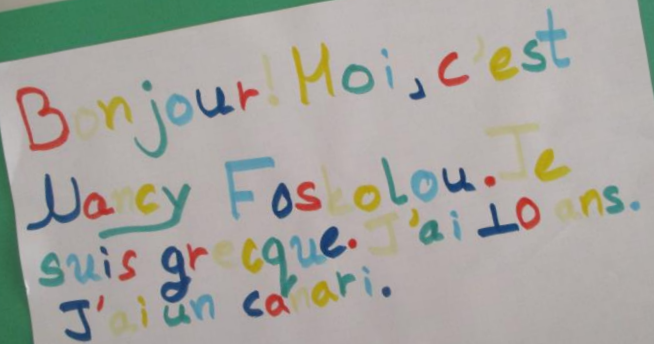 Bonjour! Moi, c'est
Nancy Foskolou. Je
suis grecque. J'ai 10 ans.
J'ai un canari.